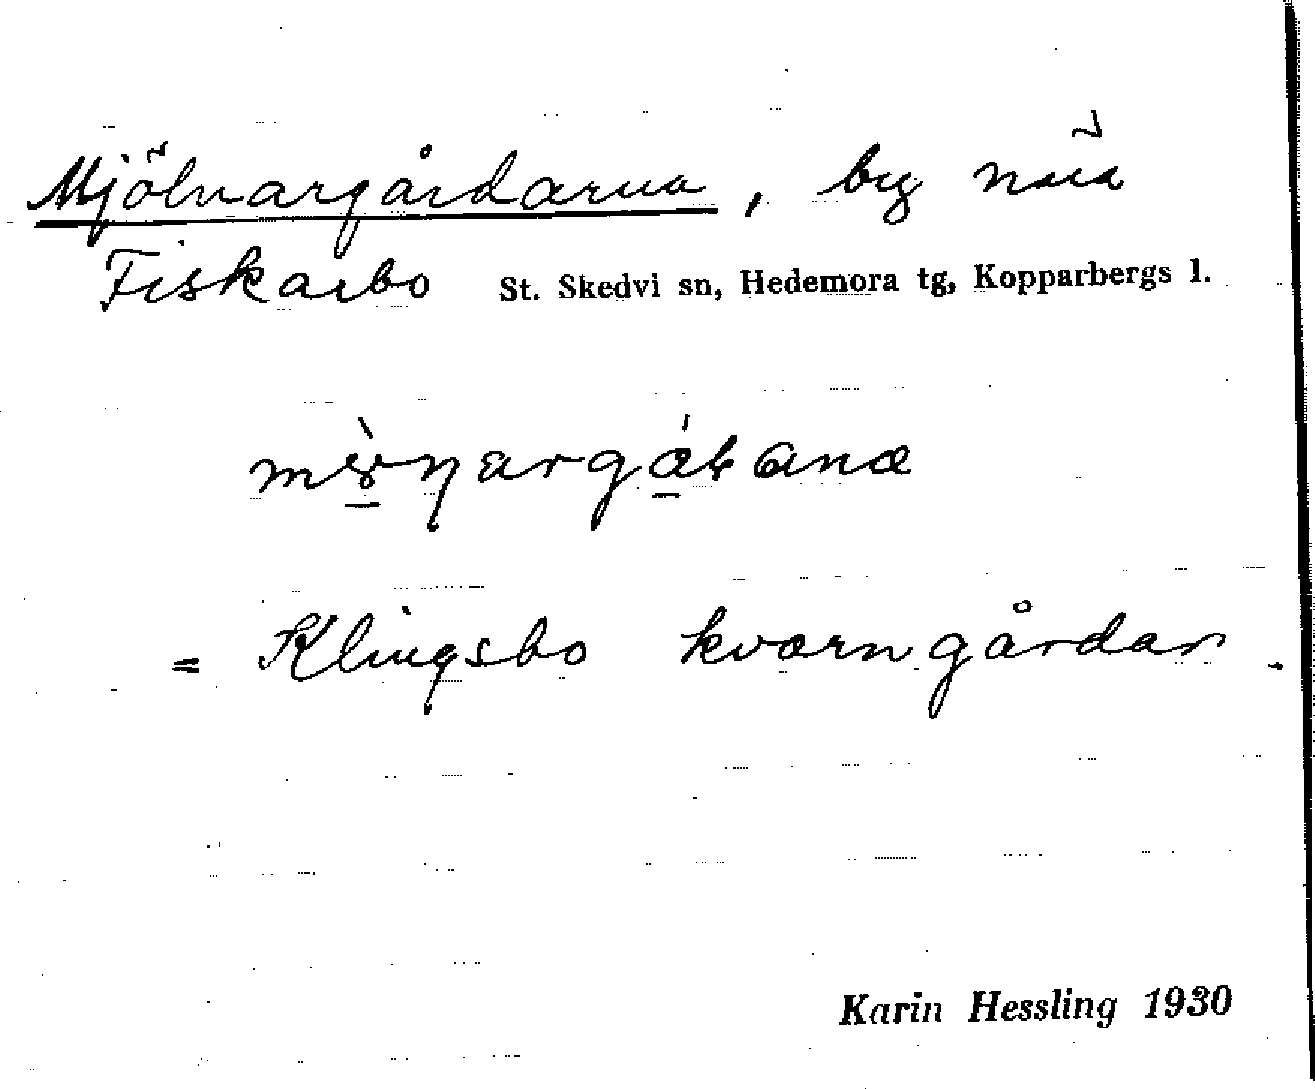 Mjölnargårdarna, by nära
Fiskarbo St. Skedvi sn, Hedemora tg, Kopparbergs l.
= Klingsbo kvarngårdar.
Karin Hessling 1930